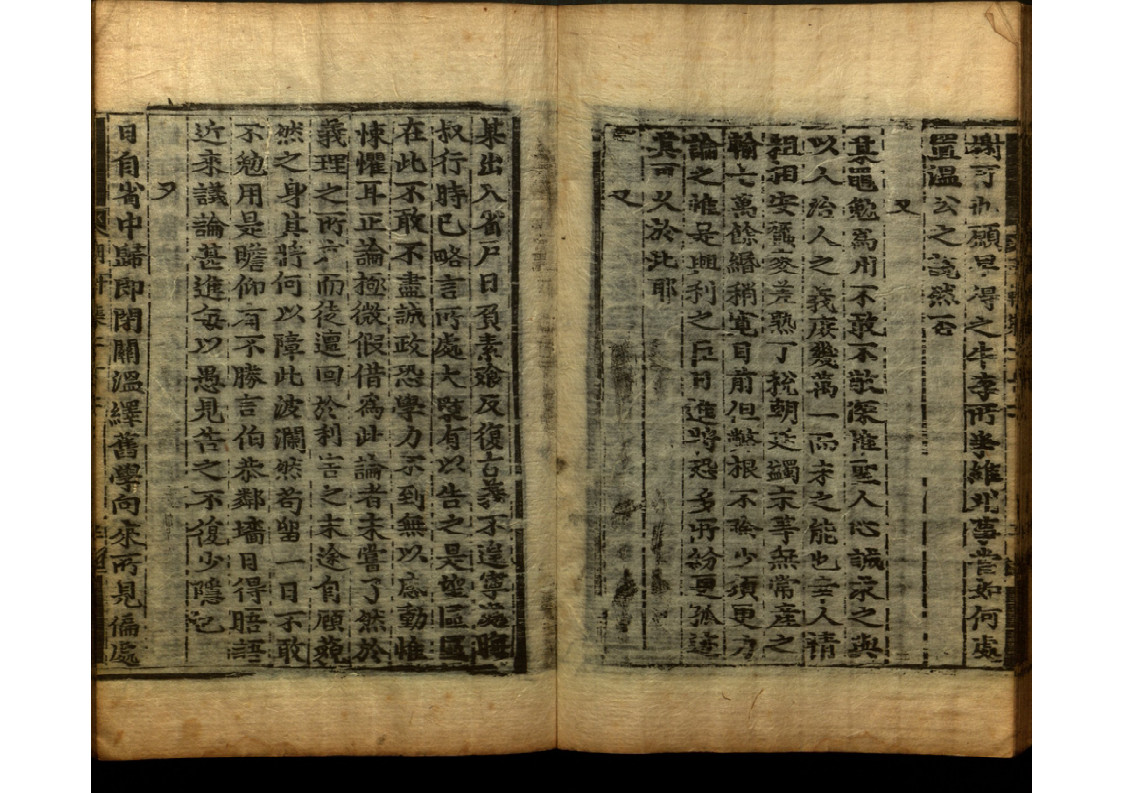 謝可也願早得之牛李所爭維州事當如何處
置溫公之說然否
又
某黽勉為用不敢不敬深惟聖人心誠求之與
以人治人之義庶幾萬一而未之能也主人情
粗相安蠶麥差熟丁稅朝廷蠲末等無常產之
輸七萬餘緡稍寬目前但弊根不除少須更力
論之惟是興利之臣日進將恐多所紛更孤遠
其可久於此耶
又
某出入省戶日負素飱反復古義不遑寧處晦
叔行時已略言所處大槩有以告之是望區區
在此不敢不盡誠政恐學力不到無以感動惟
悚懼耳正論極微假借為此論者未嘗了然於
義理之所六而徒遭回於利害之末途自顧藐
然之身其將何以障此波瀾然苟留一日不敢
不勉用是瞻仰有不勝言伯恭鄰墻日得晤語
近來議論甚進每以愚見告之不復少隱也
又
日自省中歸即閉關溫繹舊學向來所見偏處